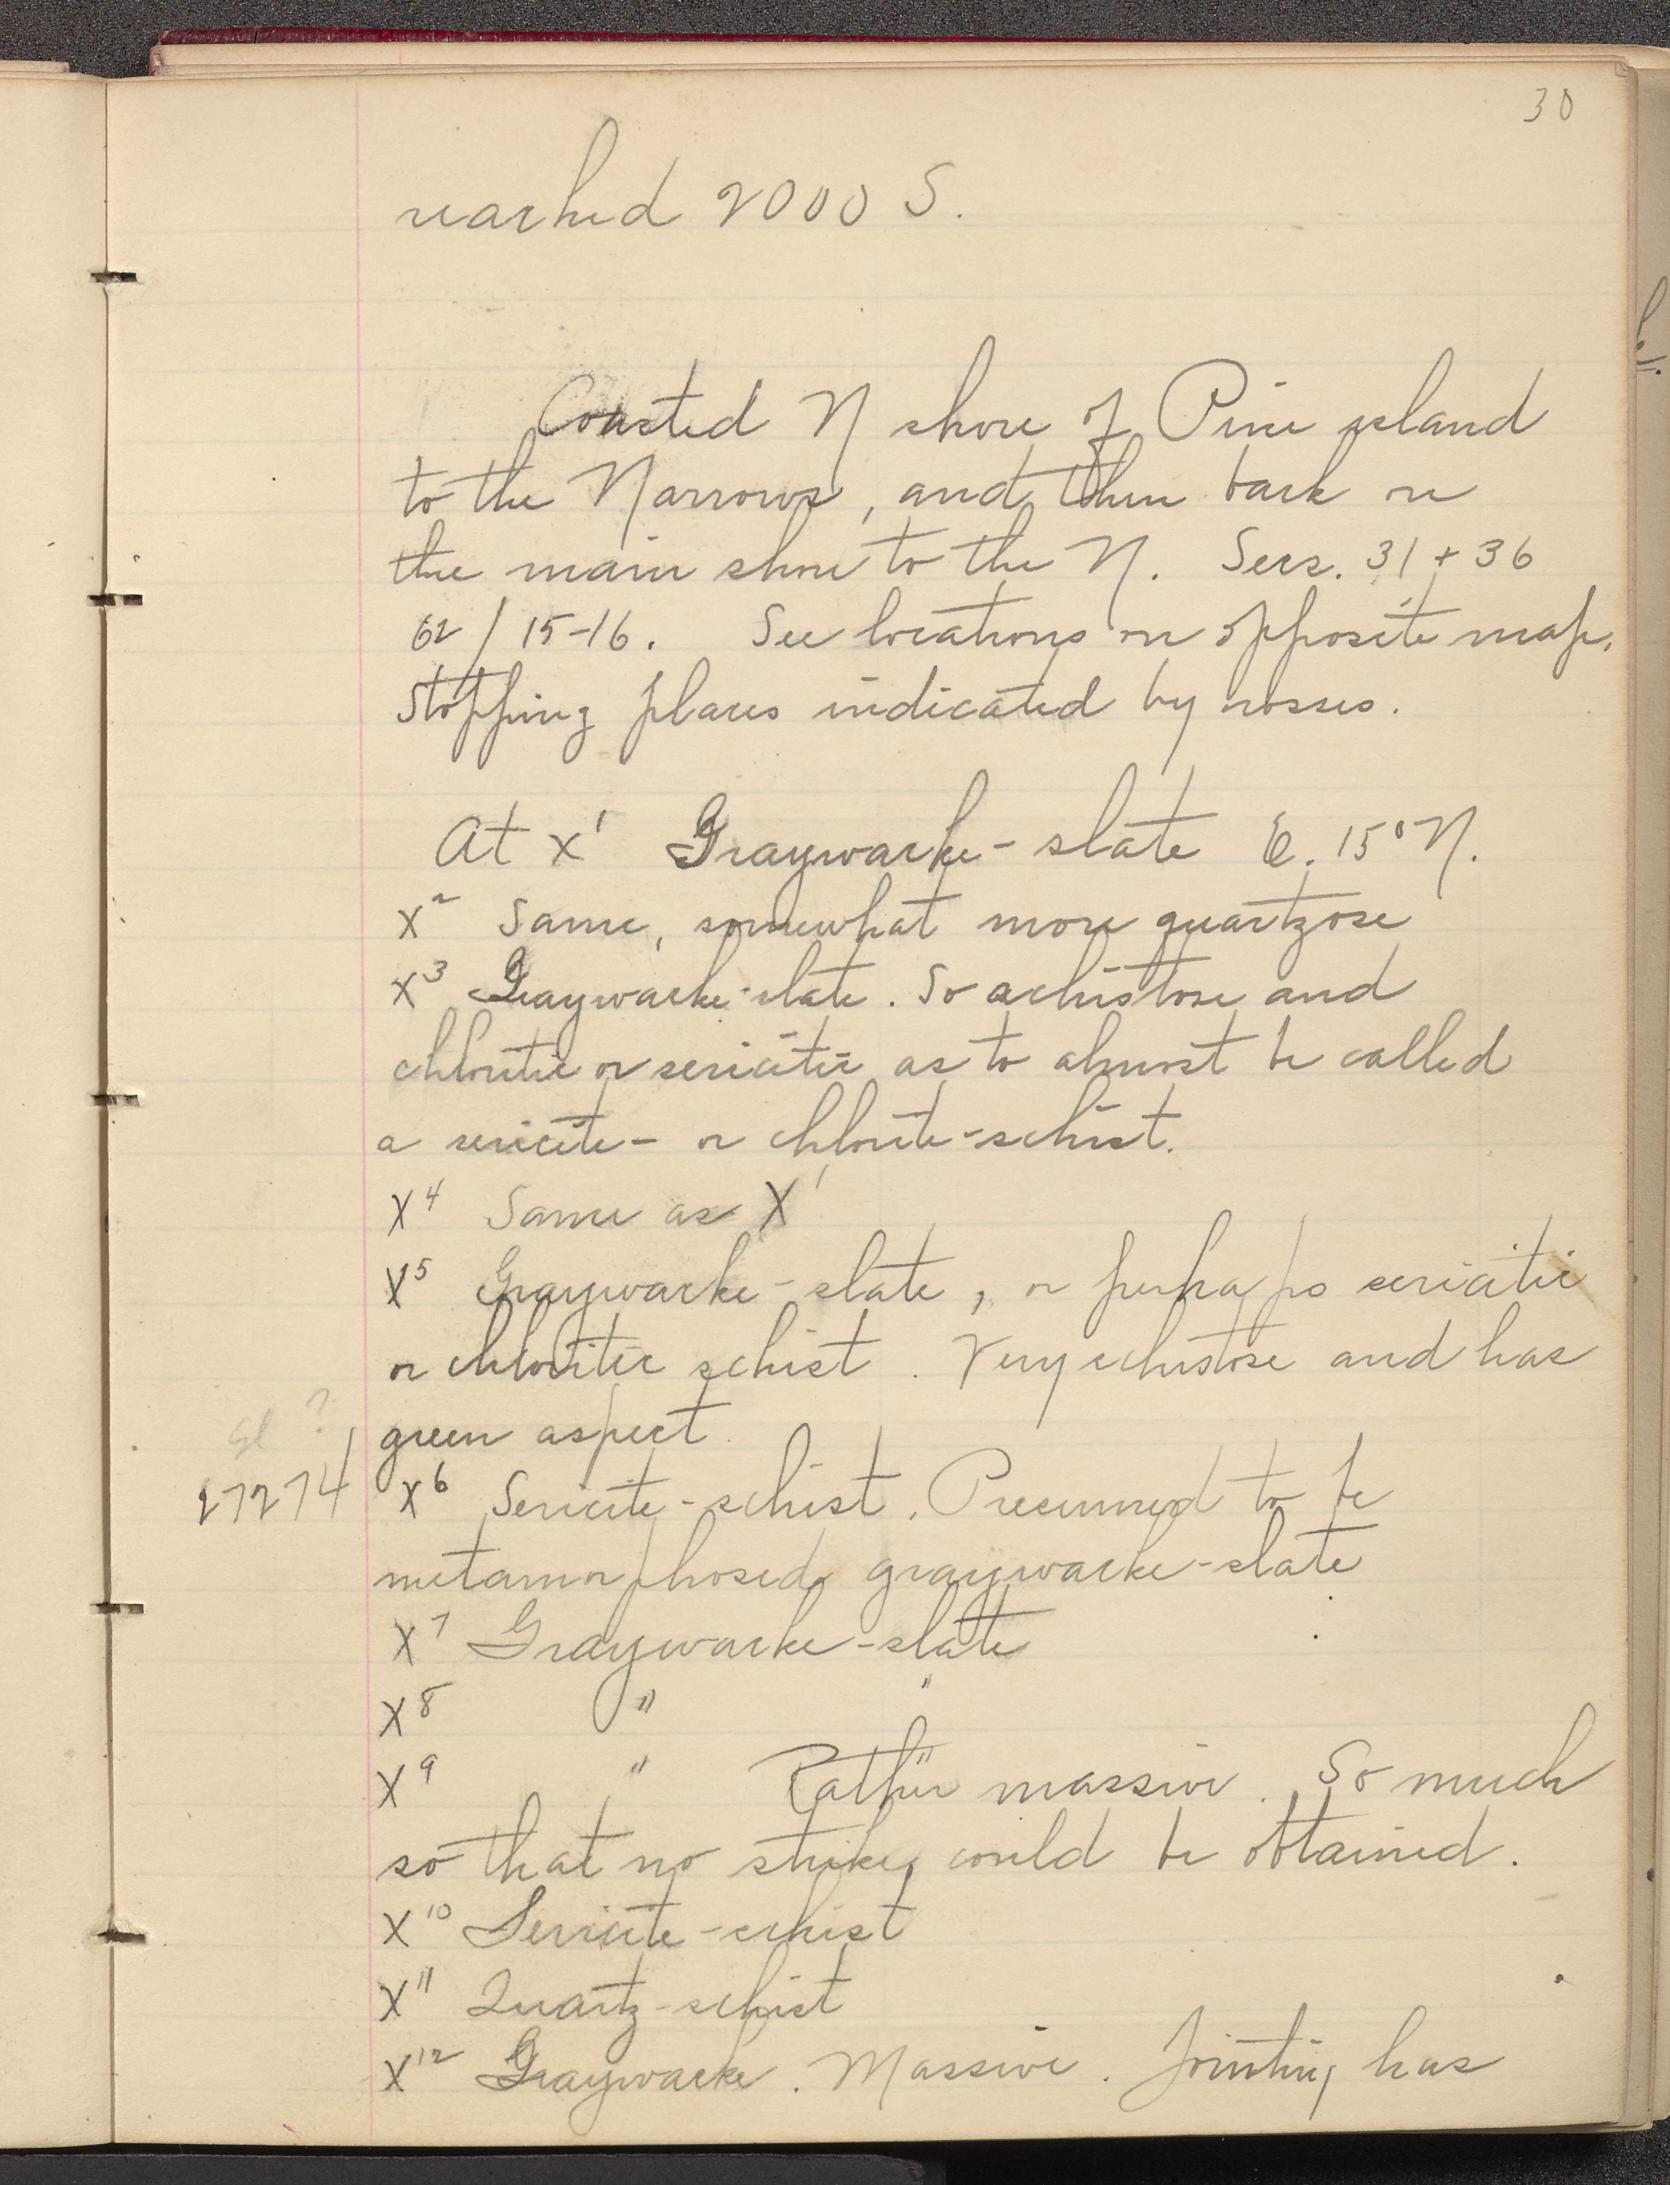 30
reached 2000 S.
Coasted N shore of Pine island
to the Narrows, and then back on
the main shore to the N. Secs. 31 + 36
62 / 15-16. See locations on opposite map.
Stopping places indicated by crosses.
At X¹ Graywacke-slate E. 15° N.
X² Same, somewhat more quartzose
X³ Graywacke-slate. So schistose and
chloritic or sericitic as to almost be called
a sericite- or chlorite-schist.
X⁴ Same as X¹
X⁵ Graywacke-slate, or perhaps sericitic
or chloritic schist. Very schistose and has
green aspect.
Sl ?
27274 X⁶ Sericite-schist. Presumed to be
metamorphosed graywacke-slate
X⁷ Graywacke-slate
X⁸ " "
X⁹ " " Rather massive. So much
so that no strike could be obtained.
X¹⁰ Sericite-schist
X¹¹ Quartz-schist
X¹² Graywacke. Massive. Jointing has